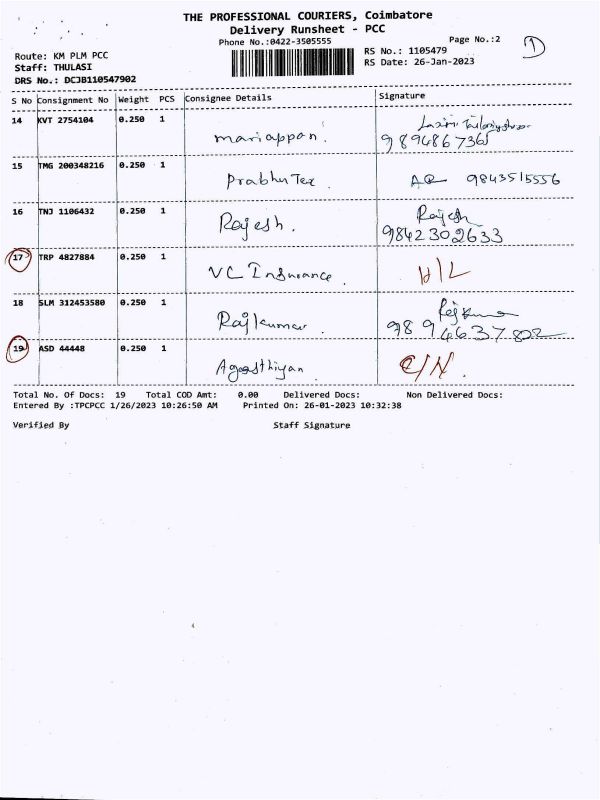 THE PROFESSIONAL COURIERS, Coimbatore
Delivery Runsheet - PCC
Phone No.:0422-3505555
Page No.:2
1
Route: KM PLM PCC
RS No.: 1105479
Staff: THULASI
RS Date: 26-Jan-2023
DRS No.: DCJB110547902
S No Consignment No Weight PCS Consignee Details Signature
14 KVT 2754104 0.250 1 mariappan.
15 TMG 200348216 0.250 1 Prabhu Tex. 9843515556
16 TNJ 1106432 0.250 1 Rajesh. Rajesh
9842302633
17 TRP 4827884 0.250 1 VC Insurance. H/L
18 SLM 312453580 0.250 1 Rajkumar. Rajkumar
9894637802
19 ASD 44448 0.250 1 Agasthiyan. C/N.
Total No. Of Docs: 19 Total COD Amt: 0.00 Delivered Docs: Non Delivered Docs:
Entered By :TPCPCC 1/26/2023 10:26:50 AM Printed On: 26-01-2023 10:32:38
Verified By Staff Signature